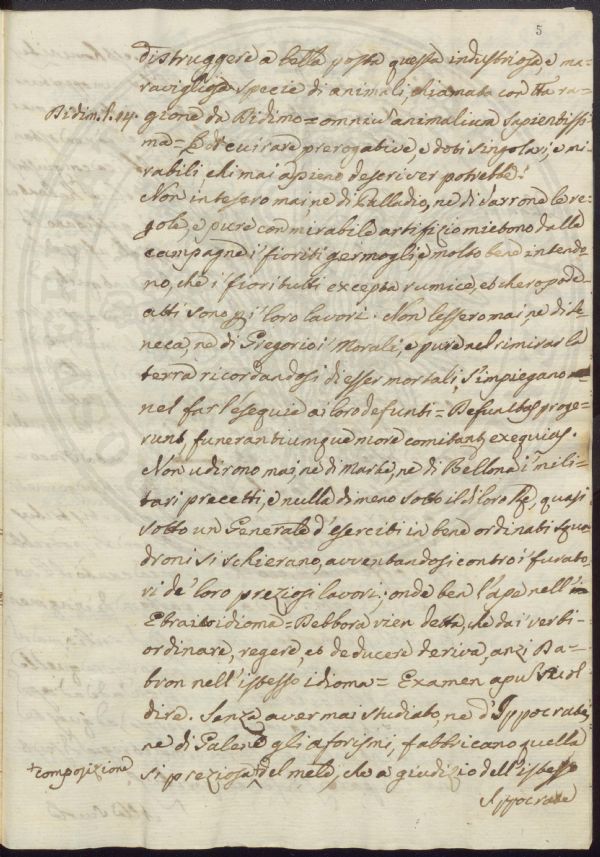 5
distruggere a bella posta questa industriosa, e ma-
ravigliosa specie di animali, chiamata con tta ra-
Bidim. l. 14. gione da Bidimo = omniu' animalium sapientissi-
ma = rare prerogative, e doti singolari, e mi-
rabili chi mai apieno descriver potrebbe?
Non intesero mai, ne di Palladio, ne di Varrone le re-
gole, e pure con mirabile artifizio mietono dalle
campagne i fioriti germogli, e molto bene intendo-
no, che i fiori tutti excepta rumice, et chenopode
atti sono p i loro lavori. Non lessero mai, ne di Se-
neca, ne di Gregorio i Morali, e pure nel rimirar la
terra ricordandosi di esser mortali, s'impiegano
nel far l'esequie ai loro defunti = Defunctas proge-
runt, funerantiumque more comitant exequias.
Non udirono mai, ne di Marte, ne di Bellona i mili-
tari precetti, e nulladimeno sotto il di loro Re, quasi
sotto un Generale d'eserciti in bene ordinati squa-
droni si schierano, avventandosi contro i furato-
ri de' loro preziosi lavori; onde ben l'ape nell'
Ebraico idioma = Debbora vien detta, che dai verbi -
ordinare, regere, et deducere deriva, anzi Da-
bron nell'istesso idioma = Examen apu' vuol
dire. Senza aver mai studiato, ne d'Ippocrate,
ne di Galeno gli aforismi, fabbricano quella
+composizione si preziosa + del mele, che a giudizio dell'istesso
Ippocrate